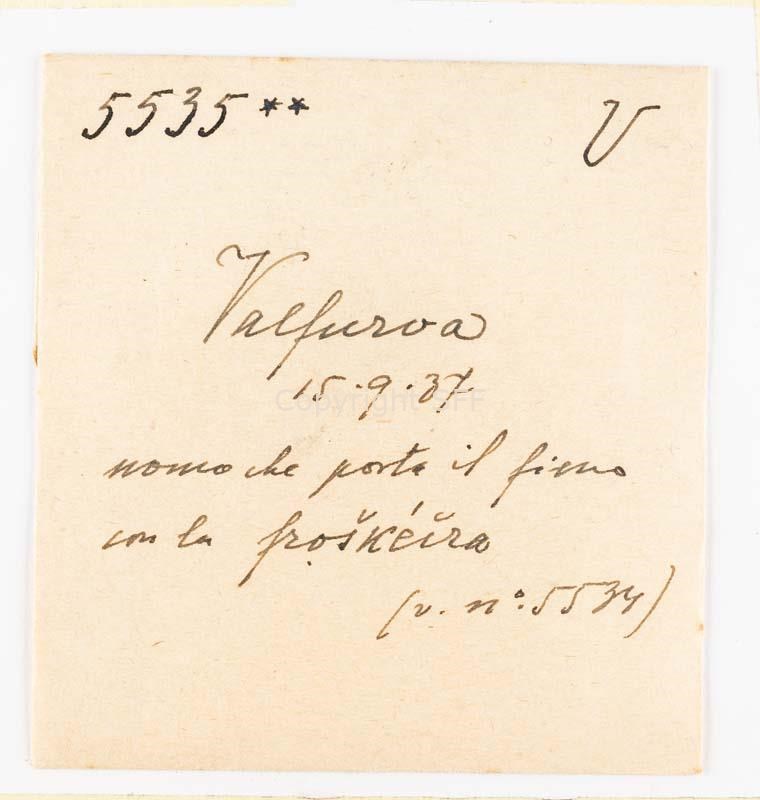 5535** V
Valfurva
15.9.37
Copyright SFF
uomo che porta il fieno
con la froškéira
(v. n°. 5534)